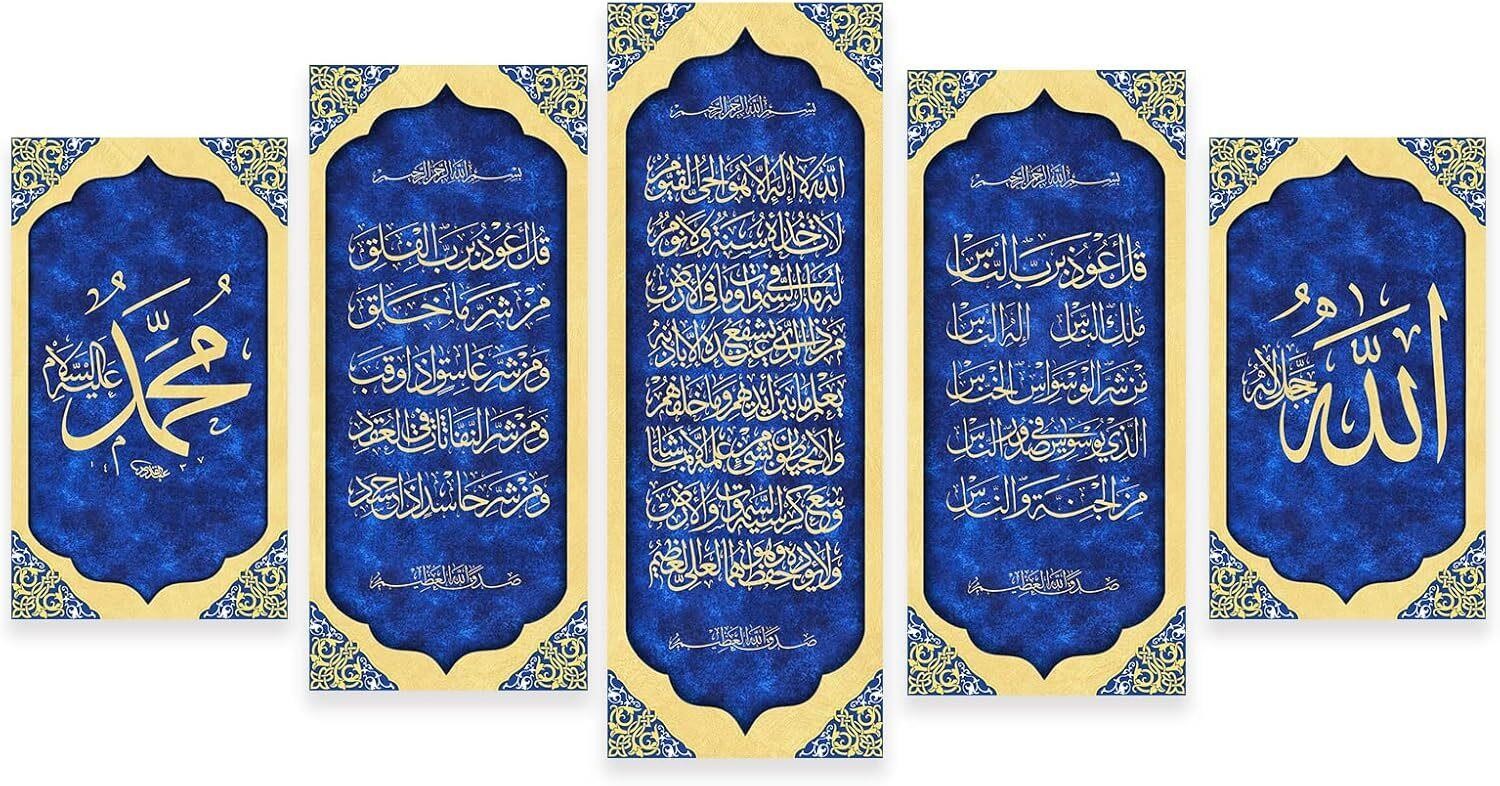 الله
جل جلاله
بسم الله الرحمن الرحيم
قل أعوذ برب الناس
ملك الناس إله الناس
من شر الوسواس الخناس
الذي يوسوس في صدور الناس
من الجنة والناس
صدق الله العظيم
بسم الله الرحمن الرحيم
الله لا إله إلا هو الحي القيوم
لا تأخذه سنة ولا نوم
له ما في السموات وما في الأرض
من ذا الذي يشفع عنده إلا بإذنه
يعلم ما بين أيديهم وما خلفهم
ولا يحيطون بشيء من علمه إلا بما شاء
وسع كرسيه السموات والأرض
ولا يؤده حفظهما وهو العلي العظيم
صدق الله العظيم
بسم الله الرحمن الرحيم
قل أعوذ برب الفلق
من شر ما خلق
ومن شر غاسق إذا وقب
ومن شر النفاثات في العقد
ومن شر حاسد إذا حسد
صدق الله العظيم
محمد
عليه السلام